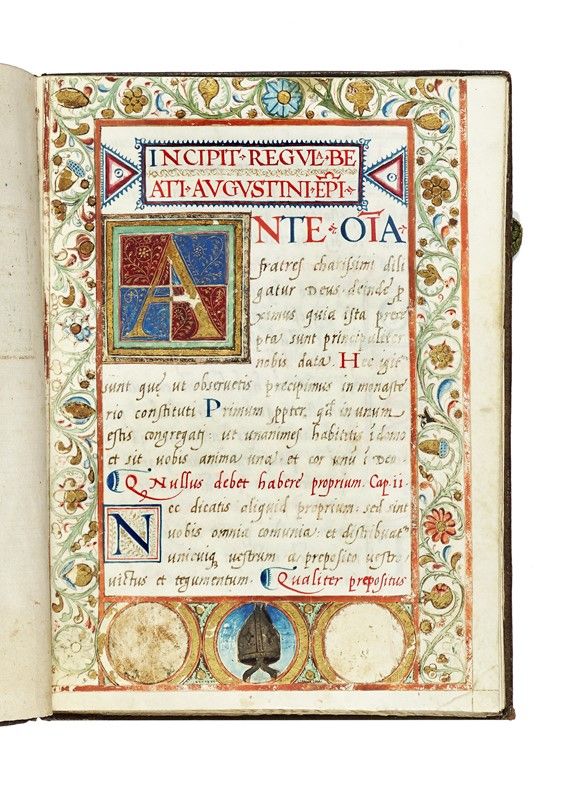 INCIPIT·REGVLA·BE
ATI·AVGVSTINI·EP̃I·
ANTE·OĨA
fratres charissimi dili
gatur Deus deinde ꝓ
ximus quia ista prece
pta sunt principaliter
nobis data. Hec igit᷒
sunt que ut obseruetis precipimus in monaste
rio constituti Primum ꝓpter qd̃ in unum
estis congregati ut unanimes habitetis ĩ domo
et sit uobis anima una et cor unũ ĩ Deo
Nullus debet habere proprium. Cap. ii.
Nec dicatis aliquid proprium sed sint
uobis omnia comunia et distribuat᷒
unicuiqꝫ uestrum a preposito uestro
uictus et tegumentum. Qualiter prepositus